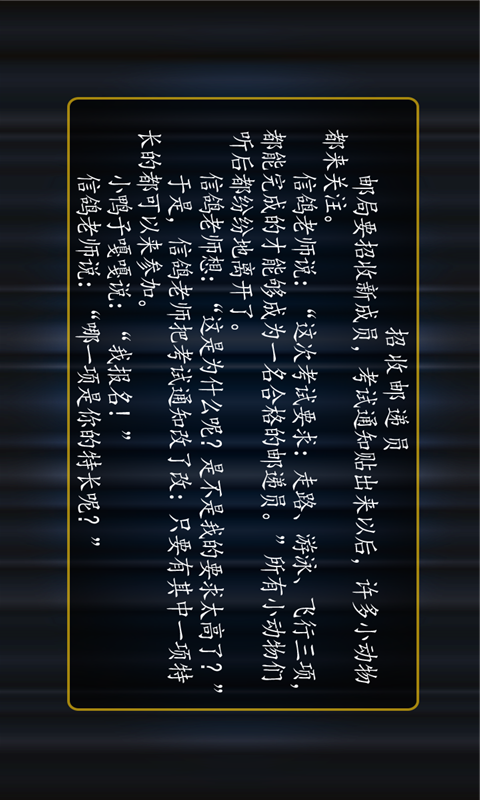 招收邮递员
邮局要招收新成员，考试通知贴出来以后，许多小动物
都来关注。
信鸽老师说：“这次考试要求：走路、游泳、飞行三项，
都能完成的才能够成为一名合格的邮递员。”所有小动物们
听后都纷纷地离开了。
信鸽老师想：“这是为什么呢？是不是我的要求太高了？”
于是，信鸽老师把考试通知改了改：只要有其中一项特
长的都可以来参加。
小鸭子嘎嘎说：“我报名！”
信鸽老师说：“哪一项是你的特长呢？”